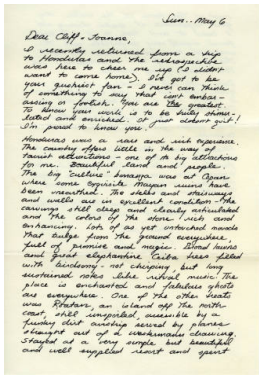 Sun.. May 6
Dear Cliff - Joanne,
I recently returned from a trip
to Honduras and the retrospective
was here to cheer me up (I didn't
want to come home). I've got to be
your gushiest fan - I never can think
of something to say that isn't embar-
assing or foolish. You are the greatest.
To know your work is to be truly stimu-
lated and enriched. It just doesn't quit!
I'm proud to know you.
Honduras was a rare and rich experience.
The country offers little in the way of
tourist attractions - one of its big attractions
for me. Beautiful land and people.
The big "culture" bonanza was at Copan
where some exquisite Mayan ruins have
been unearthed. The stelas and stairways
and walls are in excellent condition - the
carvings still deep and clearly articulated
and the colors of the stone rich and
enhancing. Lots of as yet untouched mounds
that bulge from the ground everywhere,
full of promise and magic. Small ruins
and great elephantine Ceiba trees filled
with birdsong - not chirping, but long
sustained notes like ritual music. The
place is enchanted and fabulous ghosts
are everywhere. One of the other treats
was Roatan, an island off the north
coast, still unspoiled, accessible by a
funky dirt airstrip served by planes
straight out of a Westermann drawing.
Stayed at a very simple but beautiful
and well supplied resort and spent